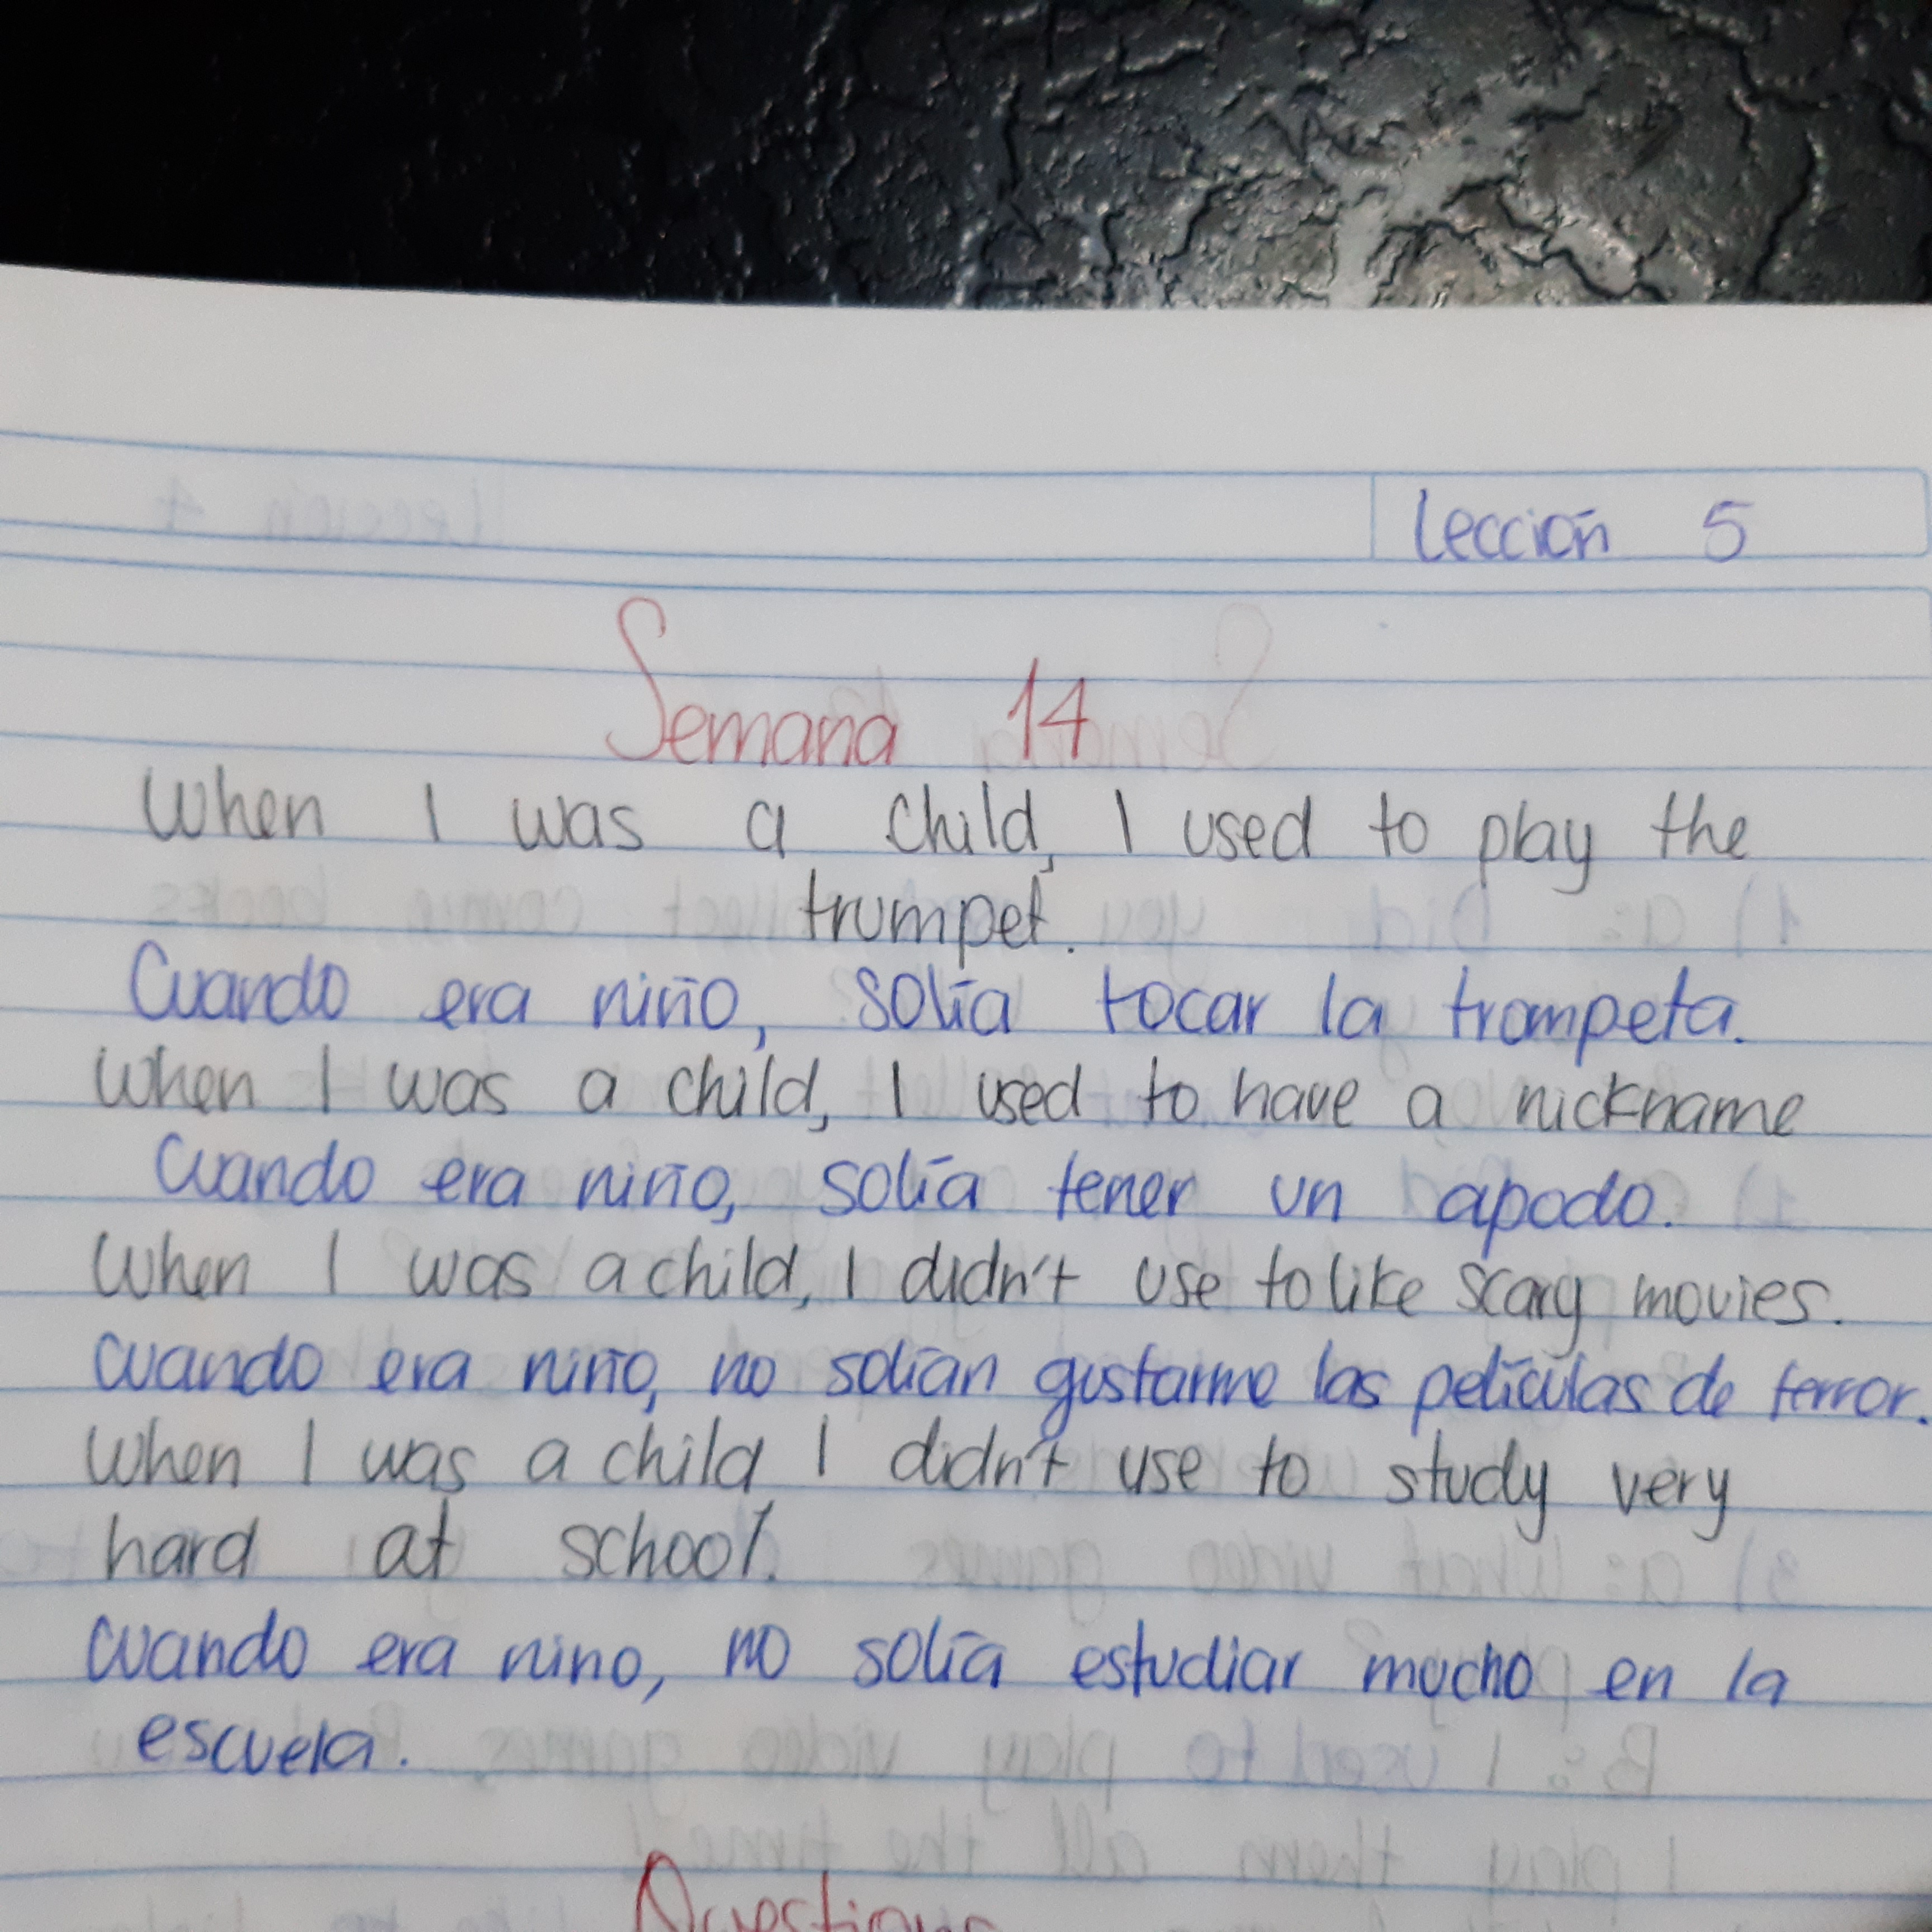 Lección 5
Semana 14
When I was a child, I used to play the
trumpet.
Cuando era niño, solía tocar la trompeta.
When I was a child, I used to have a nickname
Cuando era niño, solía tener un apodo.
When I was a child, I didn't use to like scary movies.
Cuando era niño, no solían gustarme las películas de terror.
When I was a child I didn't use to study very
hard at school.
Cuando era nino, no solía estudiar mucho en la
escuela.
Questions